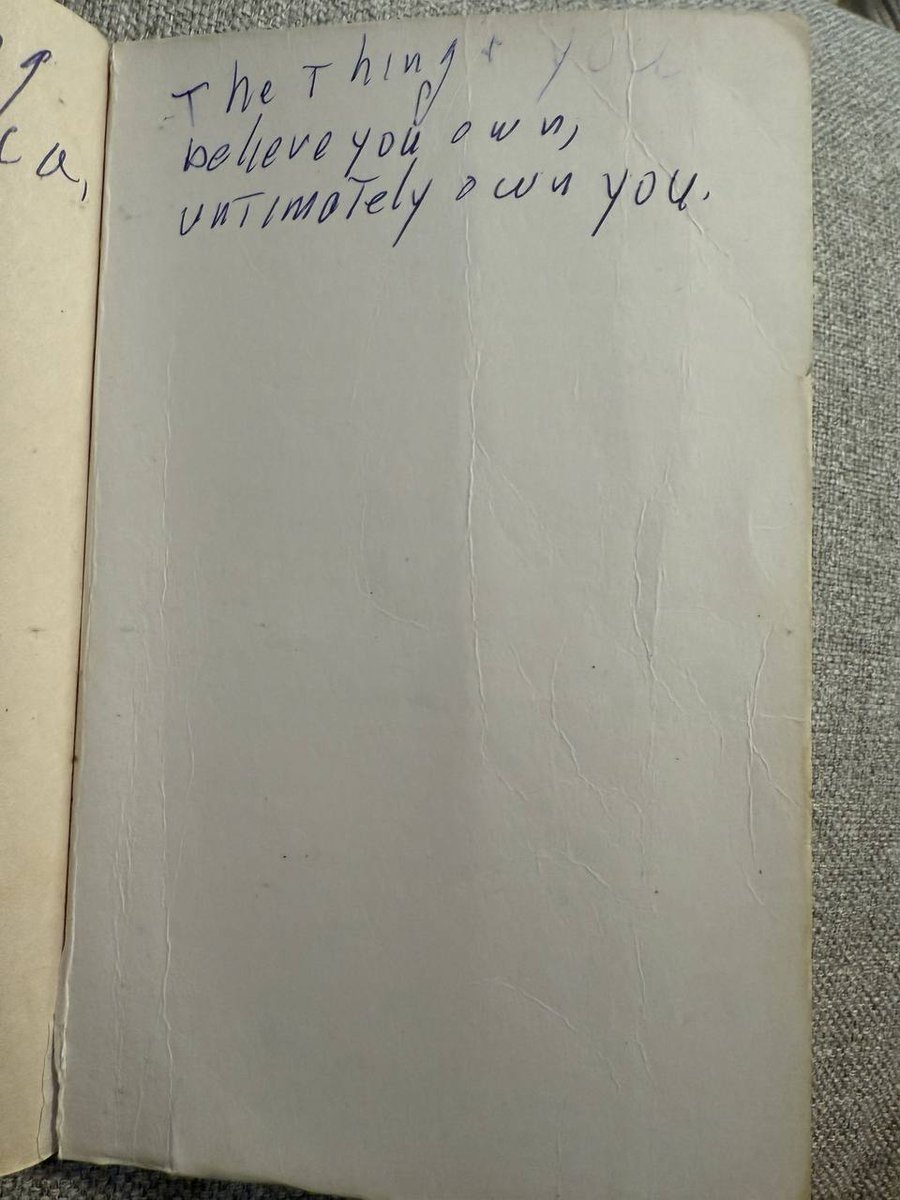 The Things you
believe you own,
untimately own you.